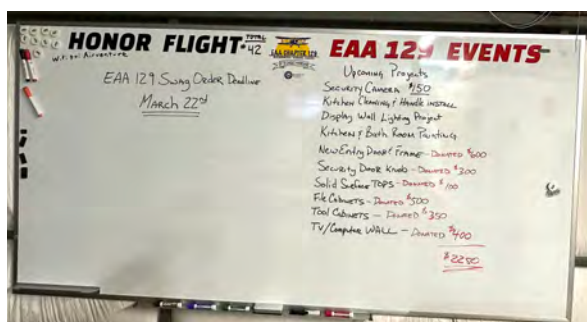 HONOR FLIGHT
TOTAL
42
EAA CHAPTER 129
EAA 129 EVENTS
EAA 129 Swag Order Deadline
March 22nd
Upcoming Projects
Security Camera $150
Kitchen Cleaning & Handle install
Display Wall Lighting Project
Kitchen & Bath Room Painting
New Entry Door & Frame - Donated $600
Security Door Knob - Donated $300
Solid Surface Tops - Donated $100
File Cabinets - Donated $500
Tool Cabinets - Donated $350
TV/Computer WALL - Donated $400